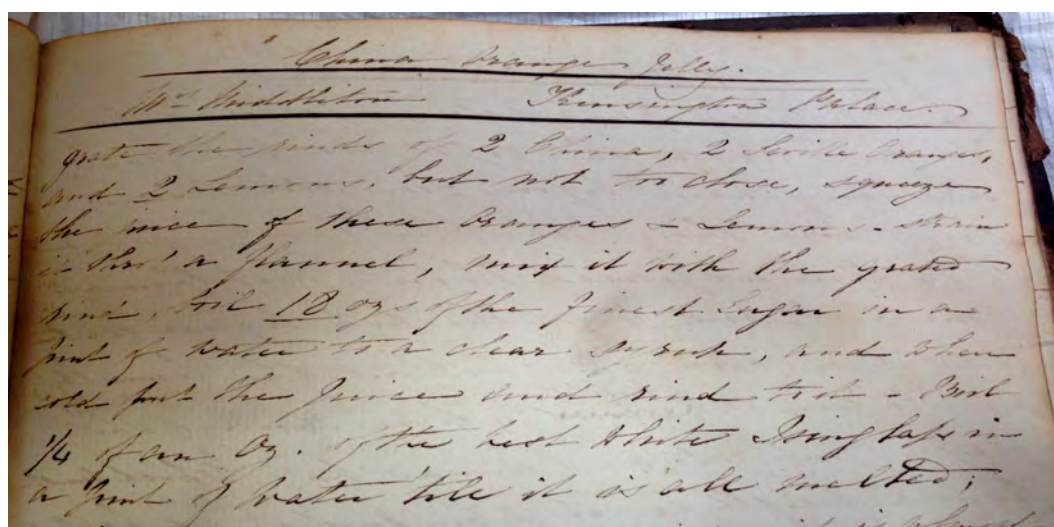 China Orange Jelly.
Mrs Middleton Kensington Palace.
grate the rinds of 2 China, 2 Seville Oranges,
and 2 Lemons, but not too close, squeeze
the juice of these Oranges & Lemons - strain
it thro' a flannel, mix it with the grated
rind, boil 18 ozs of the finest Sugar in a
pint of water to a clear syrup, and when
cold put the Juice and rind to it - Boil
1/4 of an Oz. of the best White Isinglass in
a pint of water till it is all melted;